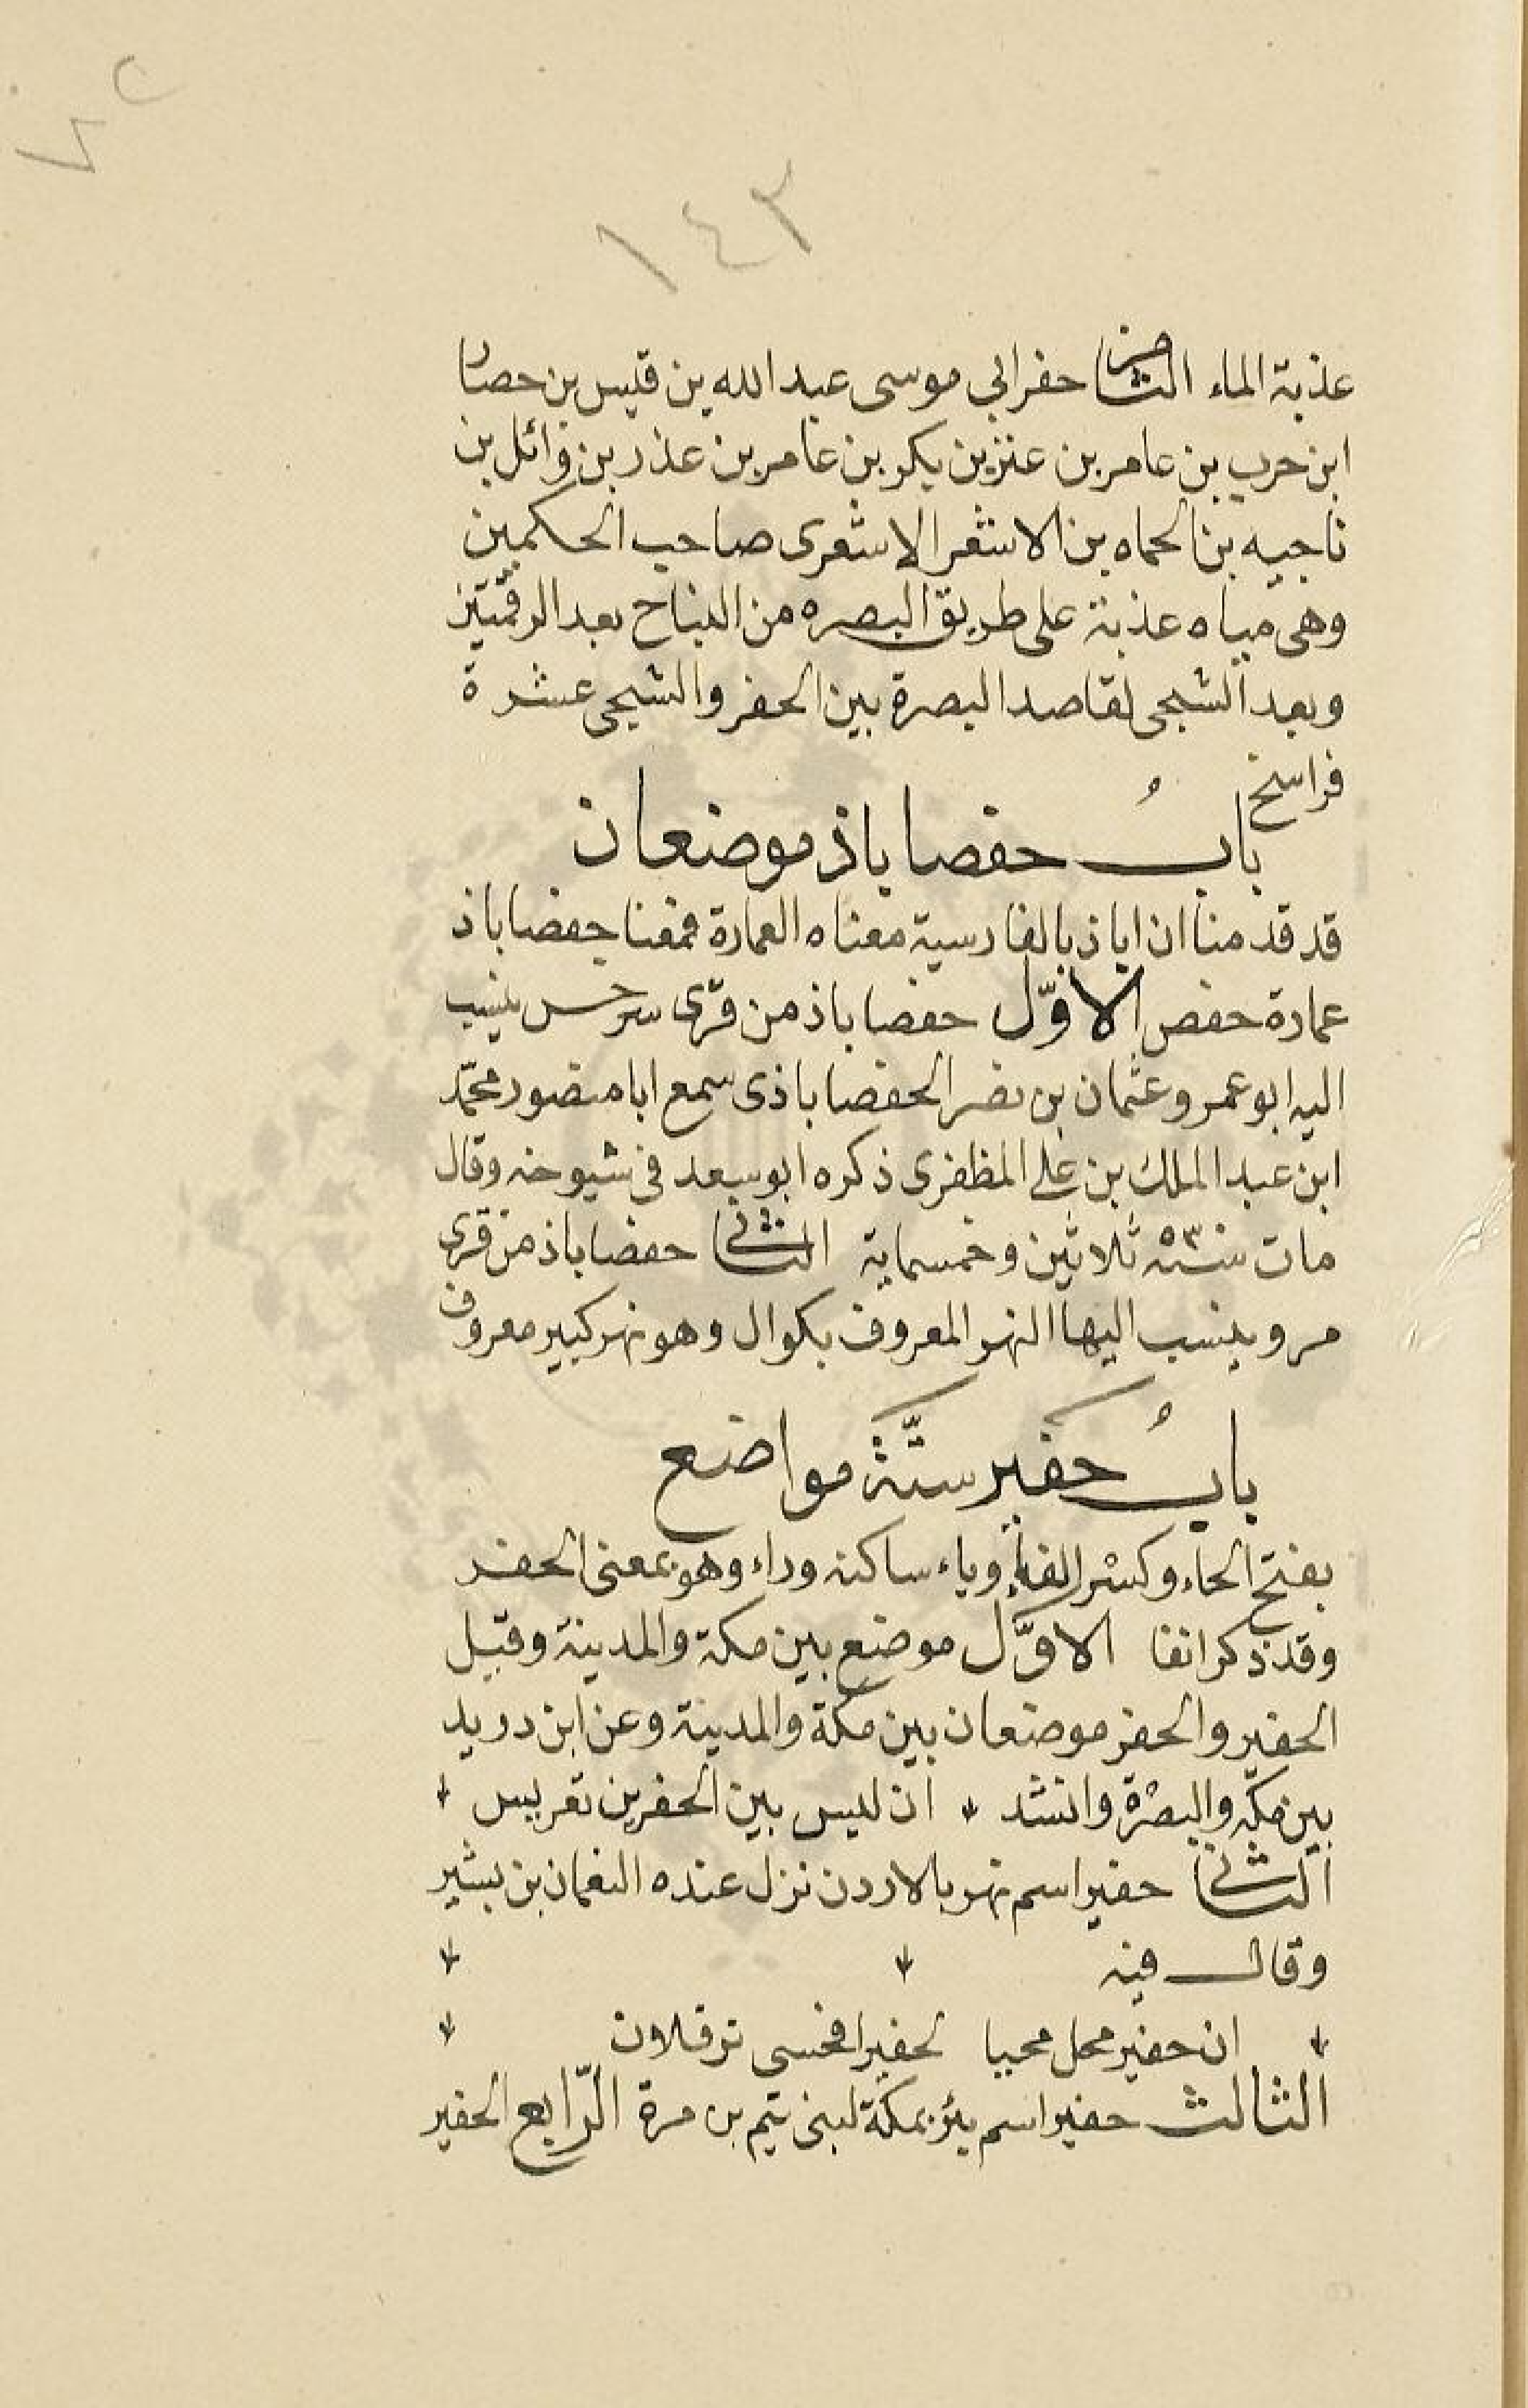 ٧٢
١٤٣
عذبة الماء الثامن حفر ابي موسى عبد الله بن قيس بن حصار
ابن حرب بن عامر بن عنز بن بكر بن عامر بن عذر بن وائل بن
ناجيه بن الجماه بن الاشعر الاشعرى صاحب الحكمين
وهى مياه عذبة على طريق البصره من النباح بعد الرقمتين
وبعد الشجى لقاصد البصرة بين الحفر والشجى عشرة
فراسخ
بابُ حفصاباذ موضعان
قد قدمنا ان اباذ بالفارسية معناه العمارة فمعنا حفصاباذ
عمارة حفص الاوّل حفصاباذ من قرى سرخس ينسب
اليه ابو عمرو عثمان بن نصر الحفصاباذى سمع ابا منصور محمّد
ابن عبد الملك بن على المظفرى ذكره ابو سعد فى شيوخه وقال
مات سنة ٥٣٠ ثلاثين وخمسماية الثانى حفصاباذ من قرى
مرو ينسب اليها النهر المعروف بكوال وهو نهر كبير معروف
بابُ حفير ستّة مواضع
بفتح الحاء وكسر الفاء وياء ساكنه وراء وهو بمعنى الحفر
وقد ذكر انفا الاوّل موضع بين مكة والمدينة وقيل
الحفير والحفر موضعان بين مكة والمدينة وعن ابن دريد
بين مكة والبصرة وانشد ان ليس بين الحفرين تعريس
الثانى حفير اسم نهر بالاردن نزل عنده النعمان بن بشير
وقال فيه
ان حفير محل محبيا لحفيرا فحسى ترقلان
الثالث حفير اسم بئر بمكة لبنى تيم بن مرة الرّابع الحفير